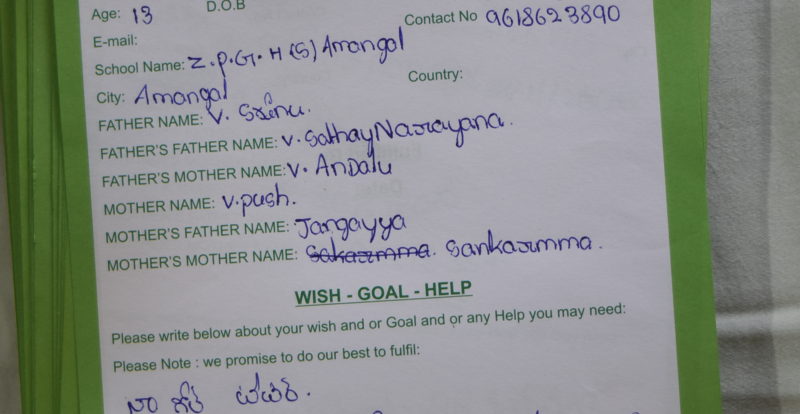 Age: 13 D.O.B Contact No 9618623890
E-mail:
School Name: Z.P.G.H(S) Amangal
City: Amangal Country:
FATHER NAME: V. Srinu.
FATHER'S FATHER NAME: V. Sathay Narayana.
FATHER'S MOTHER NAME: V. Andalu
MOTHER NAME: V. push.
MOTHER'S FATHER NAME: Jangayya
MOTHER'S MOTHER NAME: Sakarmma. Sankarmma.
WISH - GOAL - HELP
Please write below about your wish and or Goal and or any Help you may need:
Please Note : we promise to do our best to fulfil:
నా